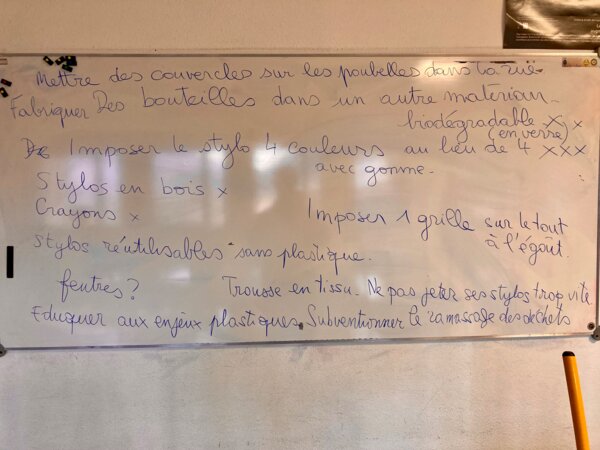 Mettre des couvercles sur les poubelles dans la rue
Fabriquer Des bouteilles dans un autre materiau
biodégradable x x x
(en verre)
Imposer le stylo 4 couleurs au lieu de 4 xxx
avec gomme.
Stylos en bois x
Crayons x
Imposer 1 grille sur le tout
à l'égout.
Stylos réutilisables sans plastique.
feutres?
Trousse en tissu. Ne pas jeter ses stylos trop vite.
Eduquer aux enjeux plastiques. Subventionner le ramassage des déchets